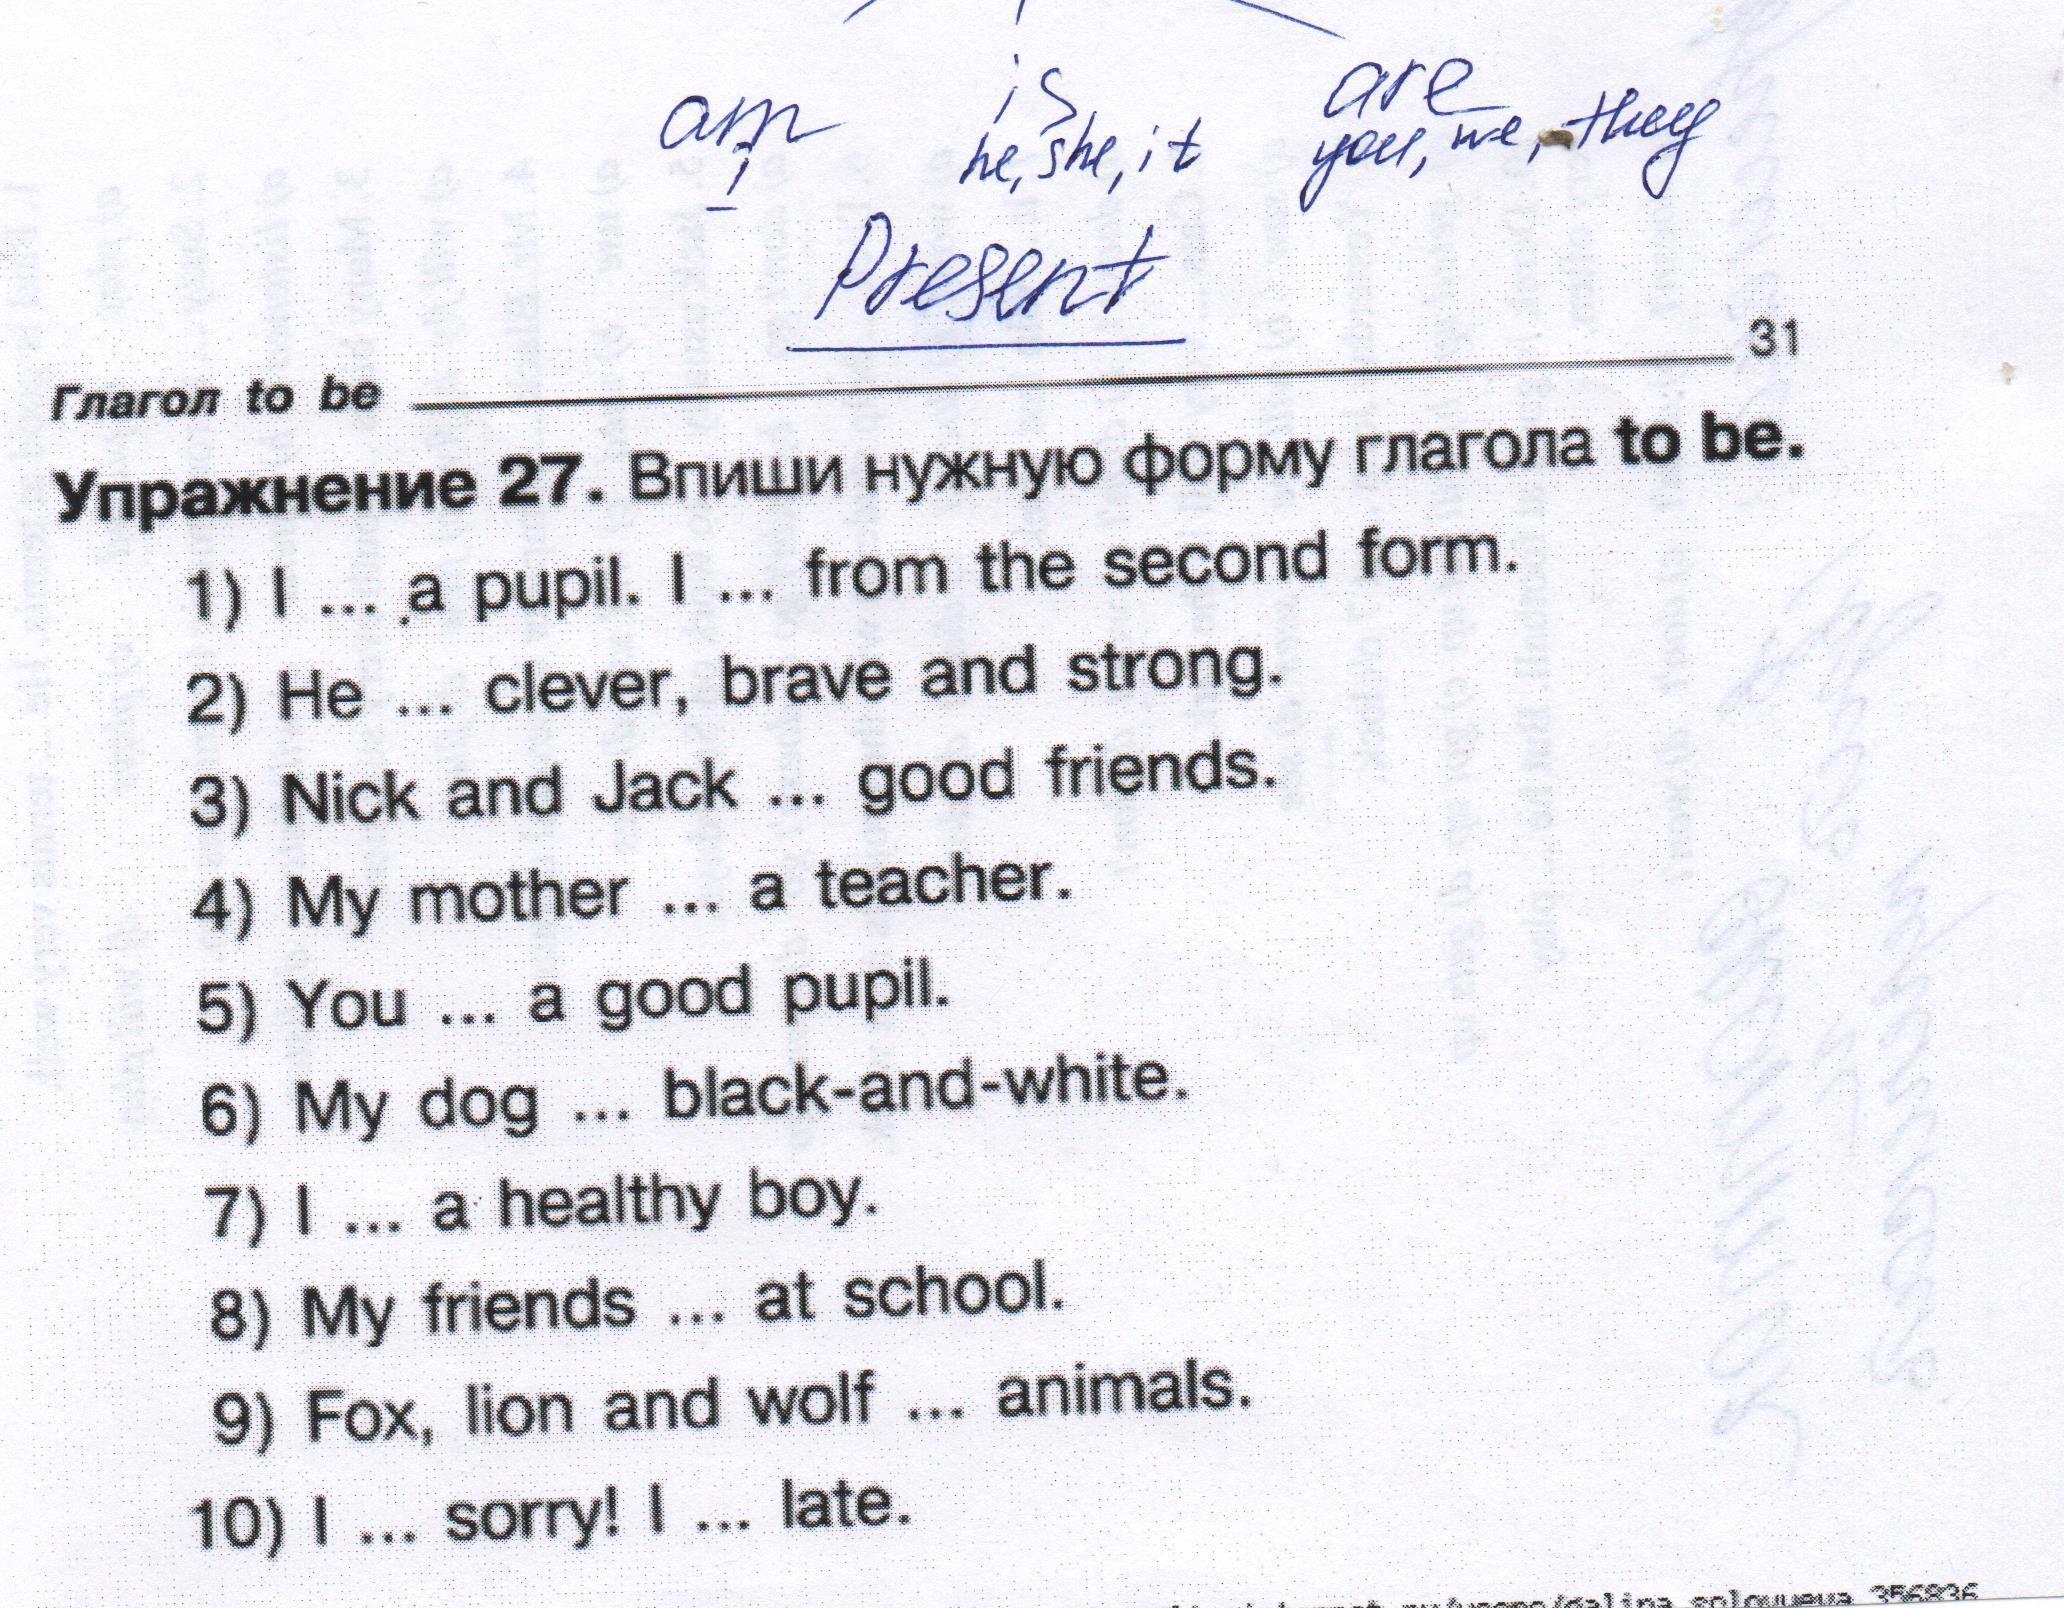 am is are
i he, she, it you, we, they
Present
31
Глагол to be
Упражнение 27. Впиши нужную форму глагола to be.
1) I ... a pupil. I ... from the second form.
2) He ... clever, brave and strong.
3) Nick and Jack ... good friends.
4) My mother ... a teacher.
5) You ... a good pupil.
6) My dog ... black-and-white.
7) I ... a healthy boy.
8) My friends ... at school.
9) Fox, lion and wolf ... animals.
10) I ... sorry! I ... late.